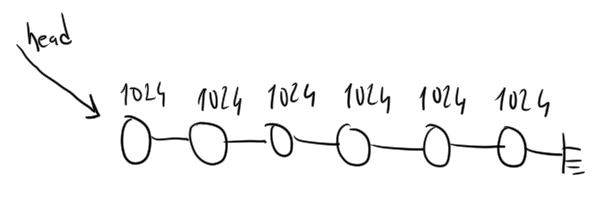 head
1024 1024 1024 1024 1024 1024